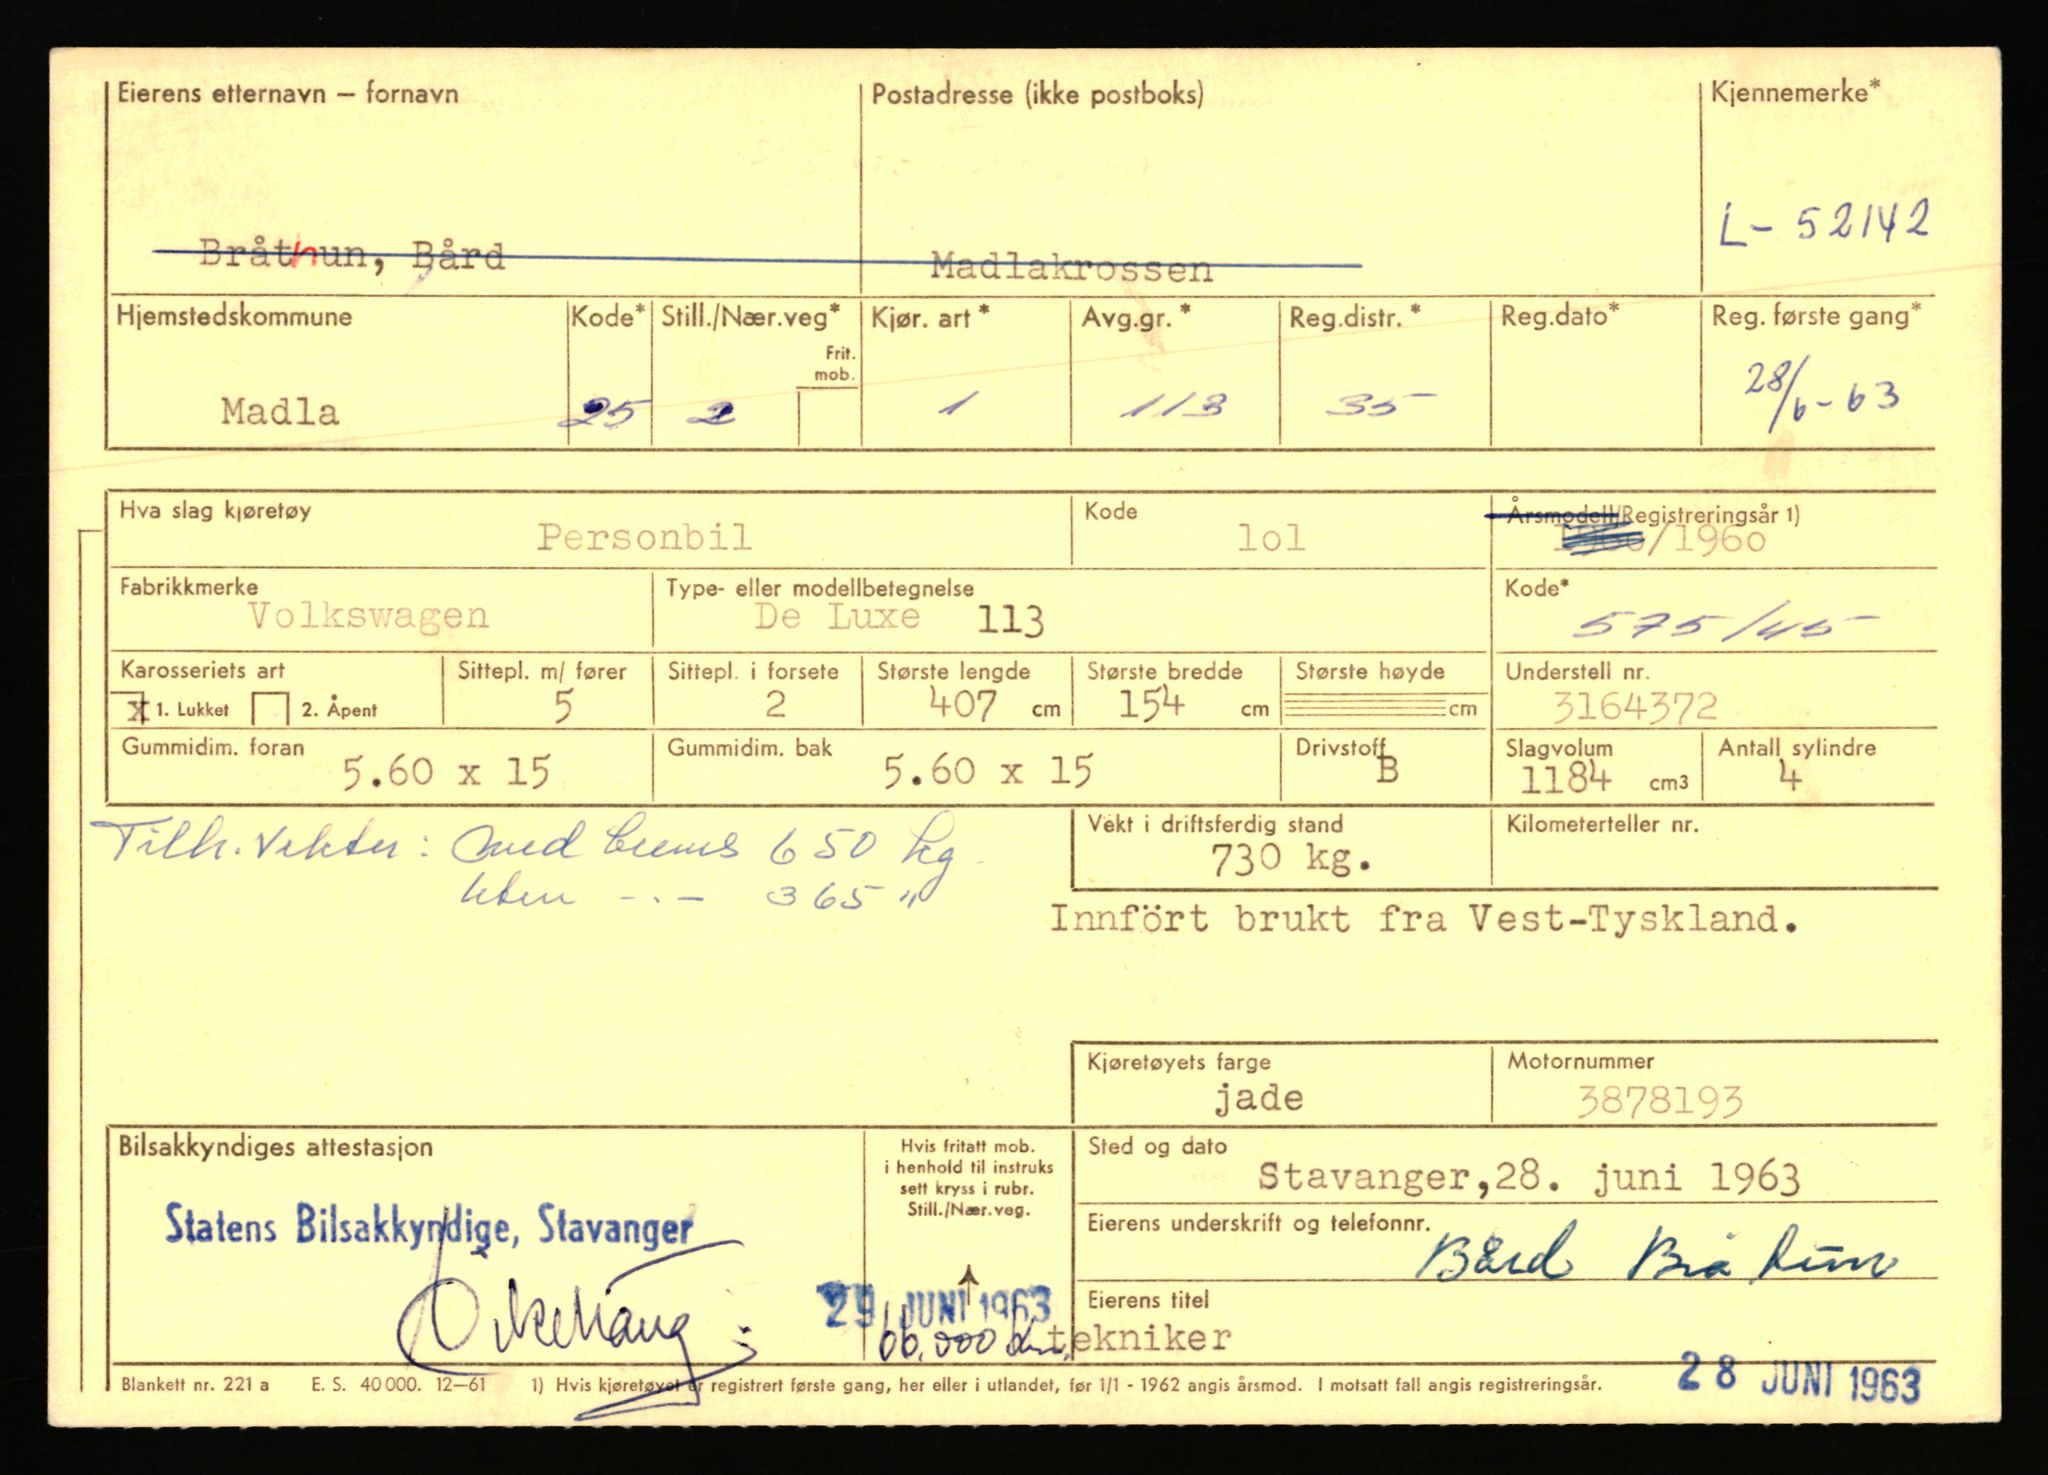 Eierens etternavn – fornavn
Postadresse (ikke postboks)
Kjennemerke*
Bråthun, Bård
Madlakrossen
L- 52142
Hjemstedskommune
Kode*
Still./Nær.veg*
Frit. mob.
Kjør. art *
Avg.gr. *
Reg.distr. *
Reg.dato*
Reg. første gang*
Madla
25
2
1
113
35
28/6-63
Hva slag kjøretøy
Personbil
Kode
lol
Årsmodell/Registreringsår 1)
/1960
Fabrikkmerke
Volkswagen
Type- eller modellbetegnelse
De Luxe 113
Kode*
575/45
Karosseriets art
x 1. Lukket 2. Åpent
Sittepl. m/ fører
5
Sittepl. i forsete
2
Største lengde
407 cm
Største bredde
154 cm
Største høyde
cm
Understell nr.
3164372
Gummidim. foran
5.60 x 15
Gummidim. bak
5.60 x 15
Drivstoff
B
Slagvolum
1184 cm3
Antall sylindre
4
Tilh. vekter: med brems 650 kg.
uten -.- 365 "
Vekt i driftsferdig stand
730 kg.
Kilometerteller nr.
Innfört brukt fra Vest-Tyskland.
Kjøretøyets farge
jade
Motornummer
3878193
Bilsakkyndiges attestasjon
Statens Bilsakkyndige, Stavanger
Hvis fritatt mob.
i henhold til instruks
sett kryss i rubr.
Still./Nær.veg.
29 JUNI 1963
66.000 km.
Sted og dato
Stavanger,28. juni 1963
Eierens underskrift og telefonnr.
Bård Bråthun
Eierens titel
tekniker
Blankett nr. 221 a E. S. 40 000. 12–61 1) Hvis kjøretøyet er registrert første gang, her eller i utlandet, før 1/1 - 1962 angis årsmod. I motsatt fall angis registreringsår.
28 JUNI 1963